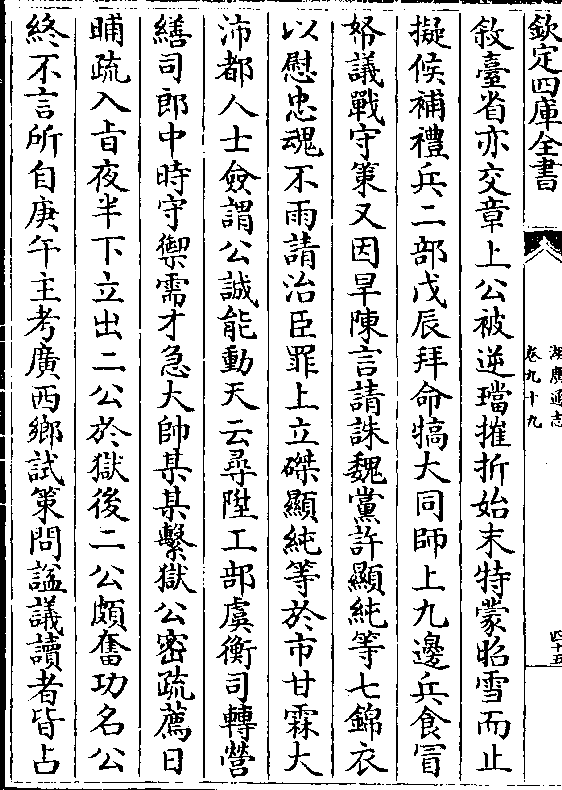 欽定四庫全書
湖廣通志
卷九十九
四十五
敘臺省亦交章上公被逆璫摧折始末特蒙昭雪而止
擬候補禮兵二部戊辰拜命犒大同師上九邊兵食冒
帑議戰守策又因旱陳言請誅魏黨許顯純等七錦衣
以慰忠魂不雨請治臣罪上立磔顯純等於市甘霖大
沛都人士僉謂公誠能動天云尋陞工部虞衡司轉營
繕司郎中時守禦需才急大帥某某繫獄公密疏薦日
晡疏入㫖夜半下立出二公於獄後二公頗奮功名公
終不言所自庚午主考廣西鄉試策問諡議讀者皆占